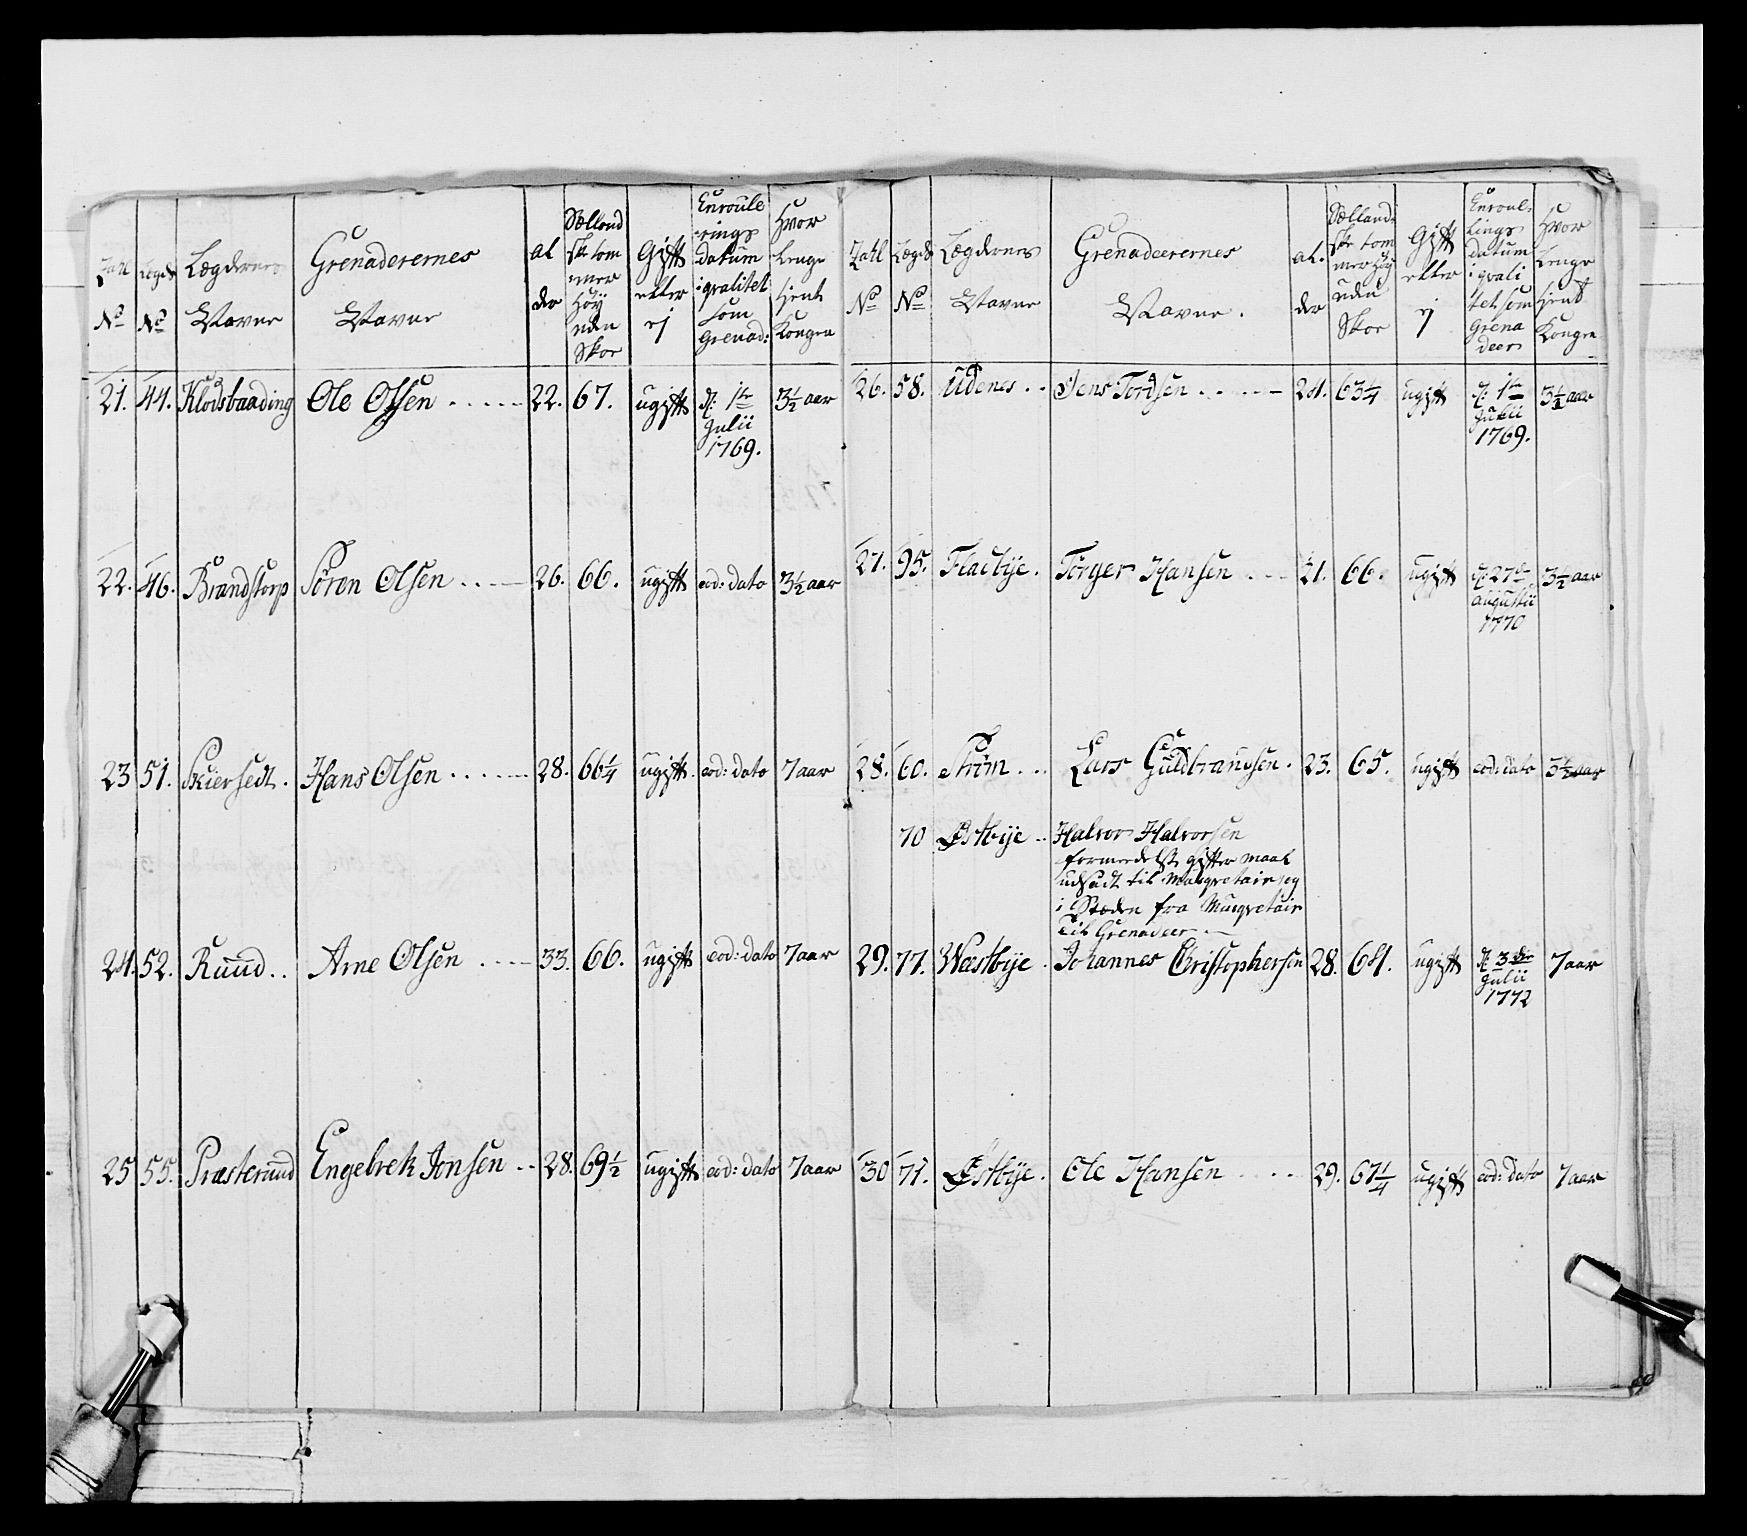 Zahl No | Lægds No | Lægdernes Navne | Grenaderernes Navne | al der | Sællandske tommer Høÿ uden Skoe | Gift eller ej | Enroulerings datum i qvalitet som Grenad: | Hvor lenge tient Kongen
21. | 44. | Klodsbaading | Ole Olsen | 22. | 67. | ugift | d: 1te Julii 1769. | 3½ aar
22. | 46. | Brandstorp | Søren Olsen | 26. | 66. | ugift | eod: dato | 3½ aar
23 | 51. | Skiersedt. | Hans Olsen | 28. | 66¼ | ugift. | eod: dato | 7 aar
24. | 52. | Ruud.. | Arne Olsen | 33. | 66. | ugift | eod: dato | 7 aar
25 | 55. | Præsterund | Engelrek Jonsen | 28. | 69½ | ugift | eod: dato | 7 aar
Zahl No | Lægds No | Lægdernes Navne | Grenadeerernes Navne. | al. der | Sællandske tommer Høÿ uden Skoe | Gift eller ej | Enroulings datum i qvalitet som Grenadeer | Hvor lenge tient Kongen
26. | 58. | Udenes | Jens Tordsen | 24. | 63¼ | ugift | d: 1te Julii 1769. | 3½ aar
27. | 95. | Flatbÿe. | Torger Hansen | 21. | 66. | ugift | d: 27de augustii 1770 | 3½ aar
28. | 60. | Strøm | Lars Guldbrandsen. | 23. | 65. | ugift | eod: dato | 3½ aar
70 | Østbÿe | Halvor Halvorsen
formedelst gifter maal
udsadt til Musqvetair, og
i Stæden fra Musqvetair
til Grenadeer
29. | 77. | Wæstbÿe | Johannes Christophersen | 28. | 64. | ugift | d: 3die Julii 1772 | 7 aar
30 | 71. | Østbÿe. | Ole Hansen | 29. | 67¼ | ugift | eod: dato | 7 aar